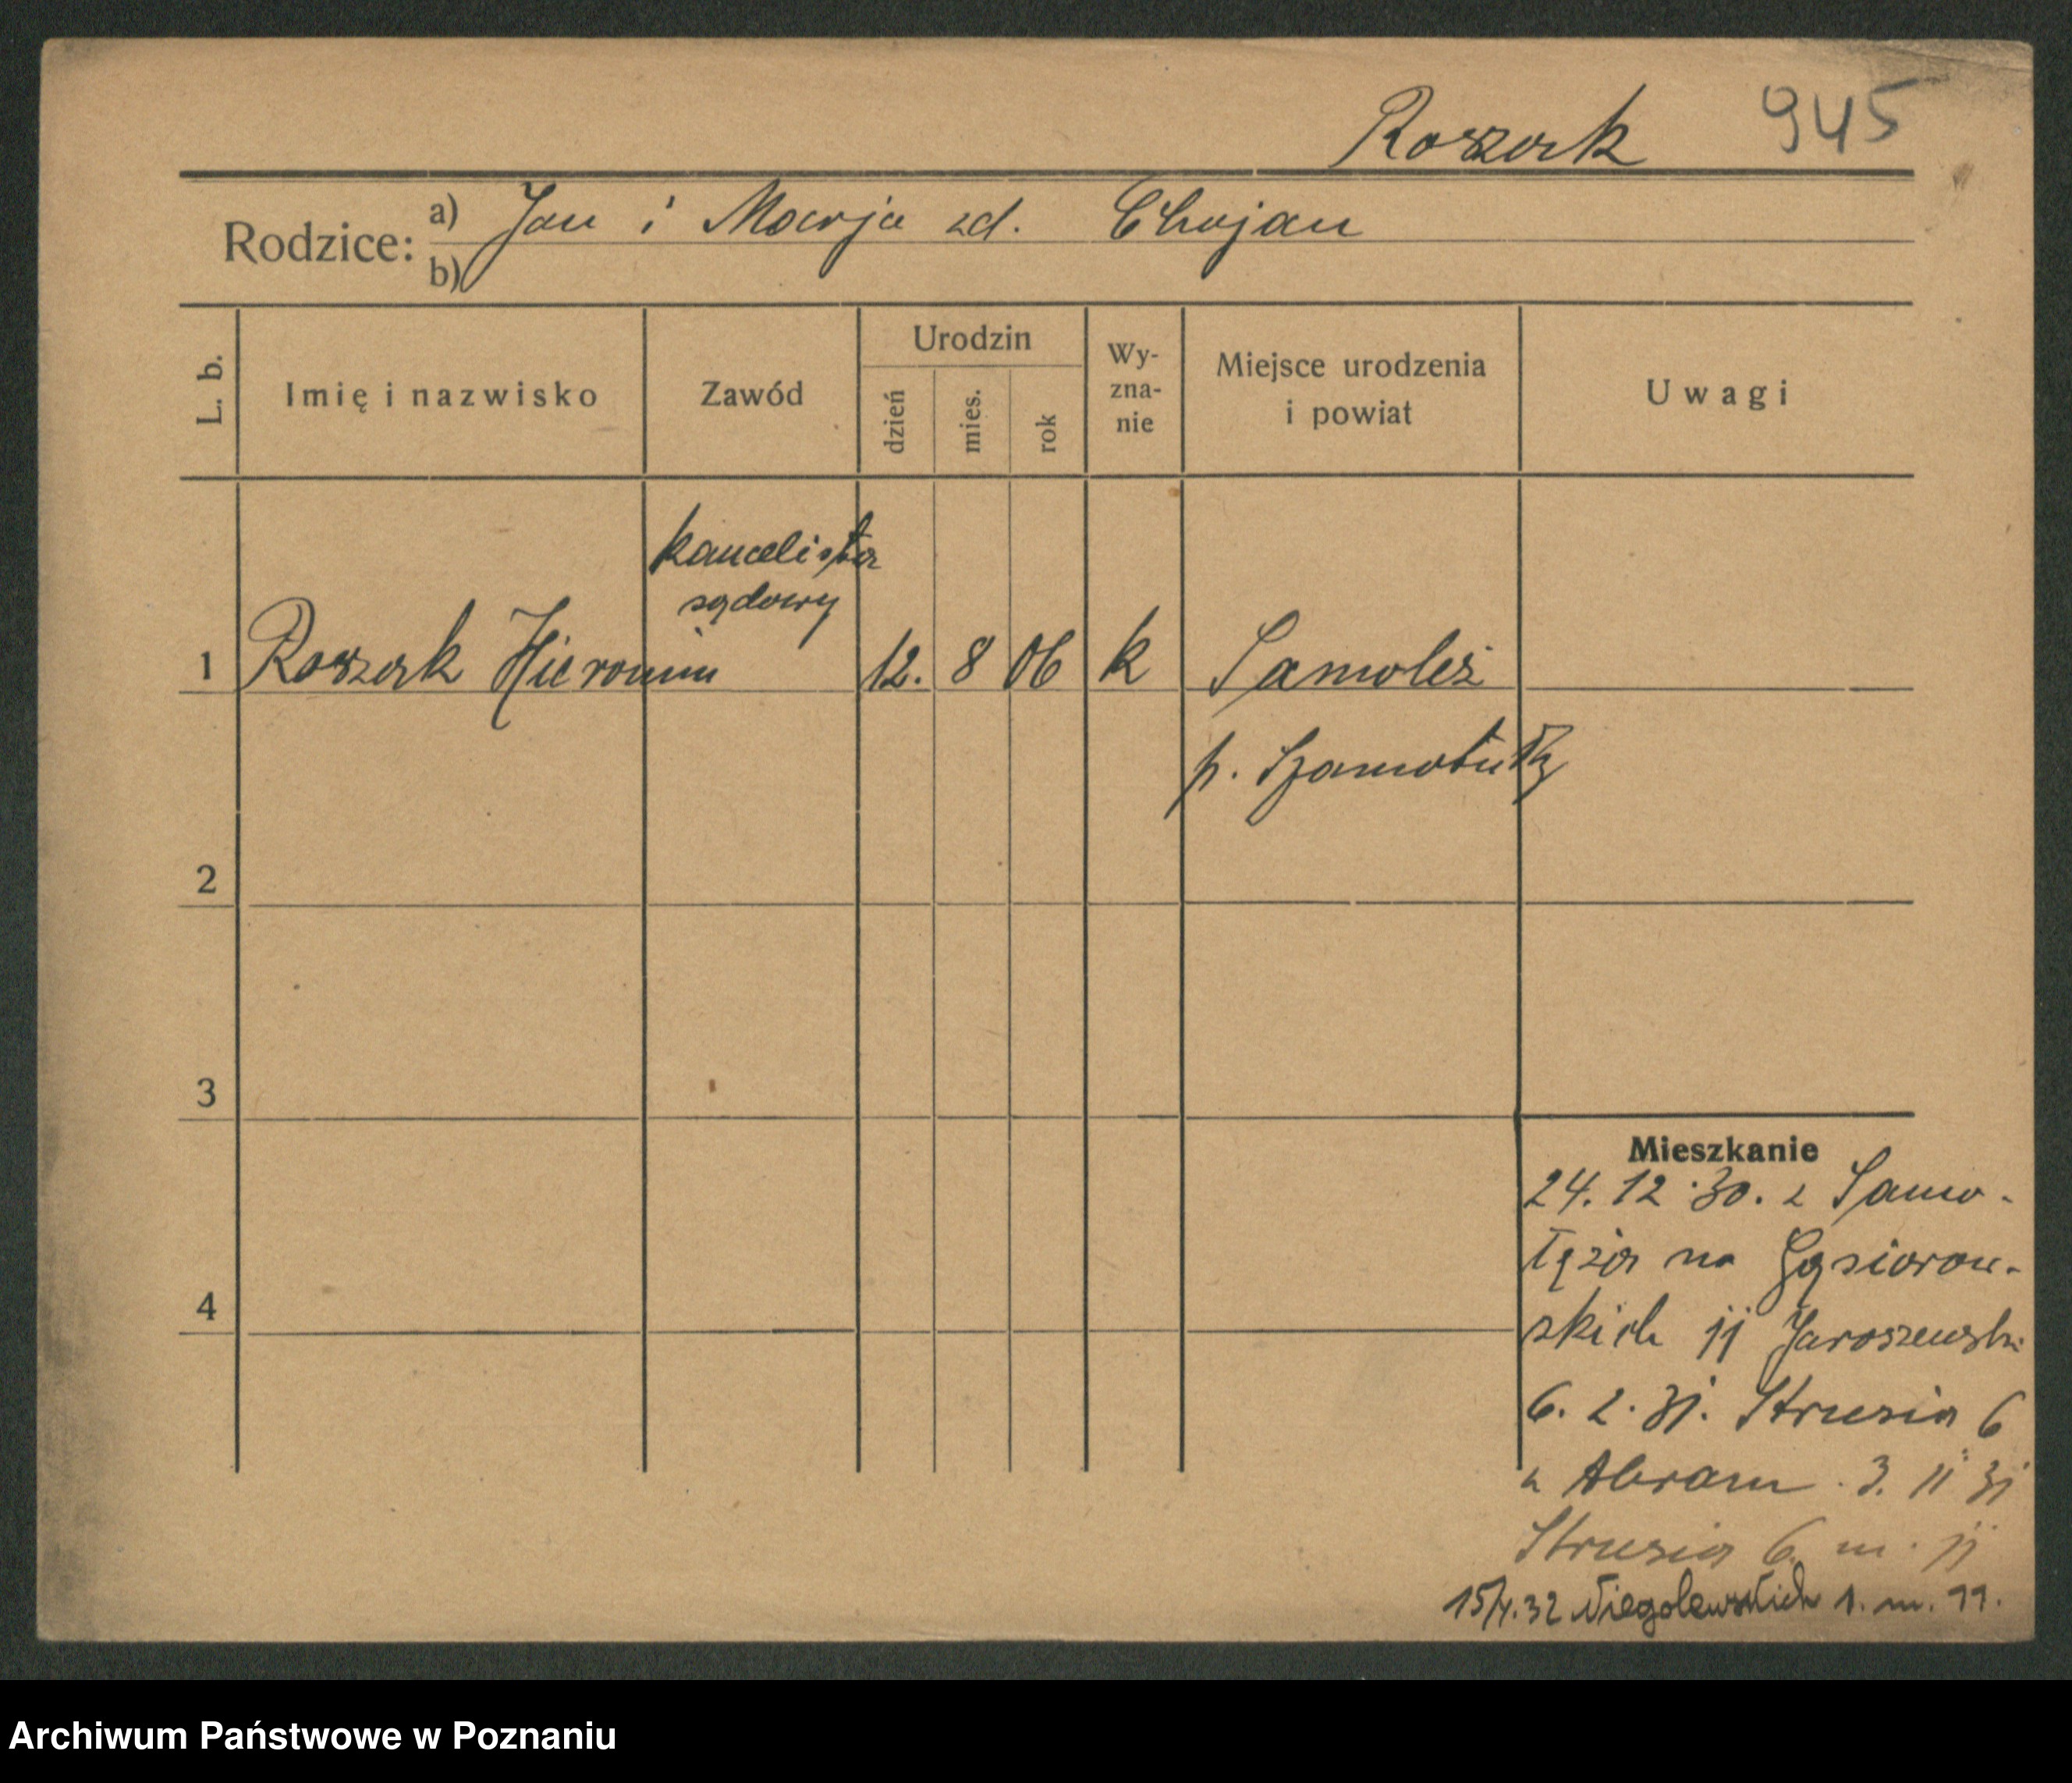 Roszak 945
Rodzice: a) Jan i Marja zd. Chojan
b)
L. b. Imię i nazwisko Zawód Urodzin dzień mies. rok Wy-zna-nie Miejsce urodzenia i powiat Uwagi
kancelista
sądowy
1 Roszak Hieronim 12. 8 06 k Samołęż
p. Szamotuły
2
3
4
Mieszkanie
24. 12. 30. z Samo-
łęża na Gąsiorow-
skich 11 Jaroszewski
6. 2. 31. Strusia 6
u Abram. 3. 11 31
Strusia 6. m. 11
15/4.32 Niegolewskich 1. m. 11.
Archiwum Państwowe w Poznaniu